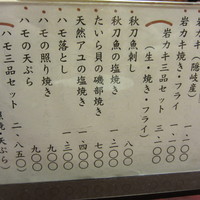 岩カキ(隠岐産)
岩カキ焼き・フライ
岩カキ三品セット 三・二〇〇
(生・焼き・フライ)
秋刀魚刺し 八〇〇
秋刀魚の塩焼き
たいら貝の磯部焼き 七〇〇
天然アユの塩焼き 一・四〇〇
ハモ落とし 一・三〇〇
ハモの照り焼き 九〇〇
ハモの天ぷら 九〇〇
ハモ三品セット 二・八五〇